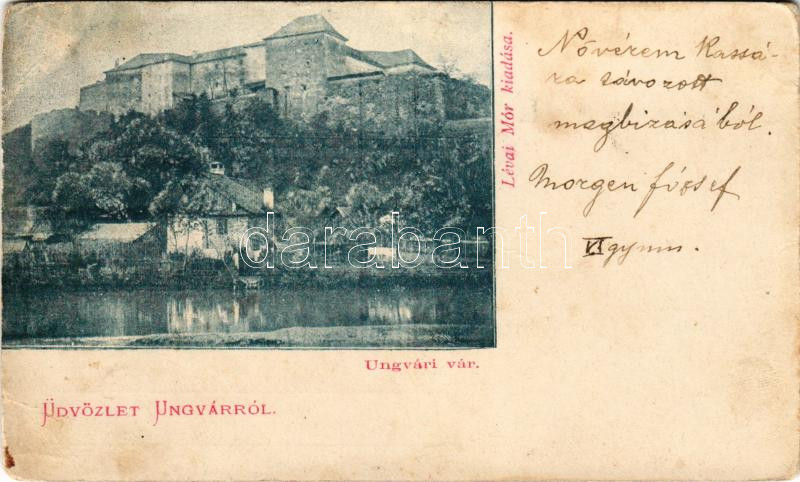 Nővérem Kassá-
ra távozott
megbizásából.
Morgen József
VI gymn.
Lévai Mór kiadása.
darabanth
Ungvári vár.
ÜDVÖZLET UNGVÁRRÓL.